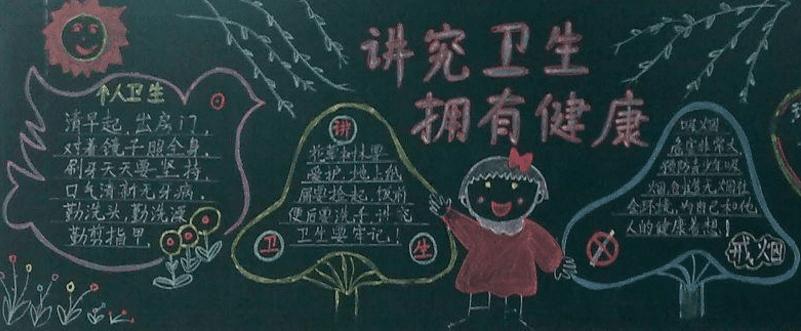 讲究卫生
拥有健康
个人卫生
清早起,出房门,
对着镜子照全身,
刷牙天天要坚持,
口气清新无牙病,
勤洗头,勤洗澡
勤剪指甲,
讲
花草树木要
爱护,地上纸
屑要捡起,饭前
便后要洗手,讲究
卫生要牢记!
卫
生
吸烟
危害非常大
预防青少年吸
烟,创造无烟社
会环境,为自己和他
人的健康着想!
戒烟